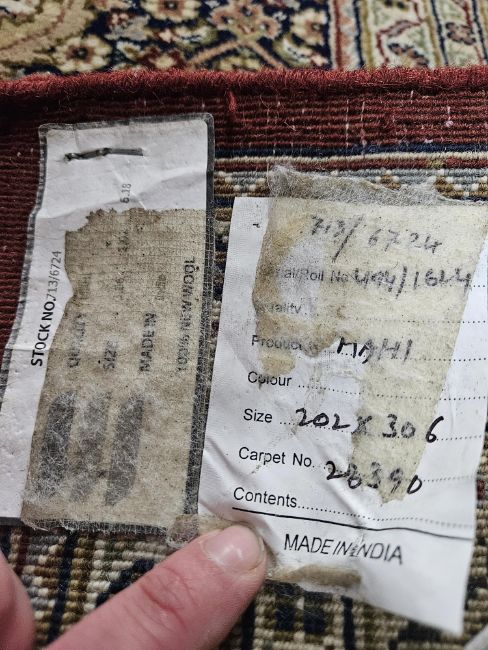 STOCK NO.713/6724
SIZE
MADE IN
100% NEW WOOL
6.18
713/6724
Roll No 494/1644
Quality
Product MAHI
Colour
Size 202 X 306
Carpet No. 28390
Contents
MADE IN INDIA